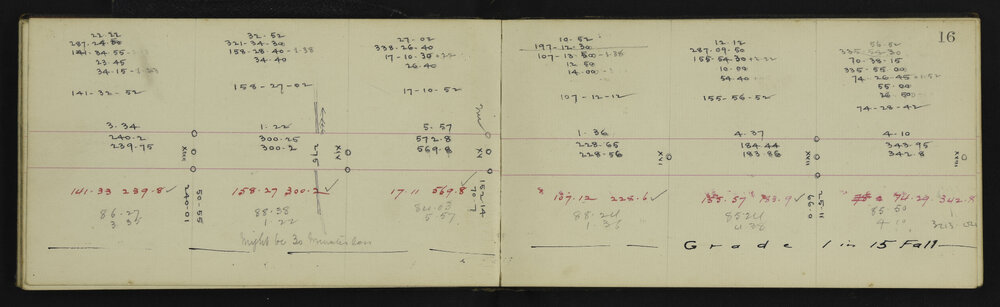 22.22
287.24.50
141.34.55
23.45
34.15
141-32-52
3.34
240.2
239.75
XIII
141.33 239.8 ✓
50-55
240.01
86.27
3.35
32.52
321-34-30
158-28-40 -1.38
34.40
158-27-02
1.22
300.25
300.2
275
XIV
158.27 300.2 ✓
88.38
1.22
Might be 30 minutes less
27-02
338-26-40
17-10-30 +.22
26.40
17-10-52
5.57
572.8
569.8
XV
17.11 569.8 ✓
162-14
70.7
84.03
5.57
10.52
197-12-30
107-13-50 -1.38
12.50
14.00
107-12-12
1.36
228.65
228.56
XVI
107.12 228.6 ✓
88.24
1.36
12.12
287.09.50
155.54.30 +2.22
10.00
54.40
155-56-52
4.37
184.44
183.86
XVII
155.57 183.9 ✓
25-11
66.0
85.24
4.36
16
56.52
335-54-30
70-38-15
335-55-00
74-26-45 +1.57
55.00
26.50
74-28-42
4.10
343.95
342.8
XVIII
74.29 342.8
85.50
4.10
Grade 1 in 15 Fall